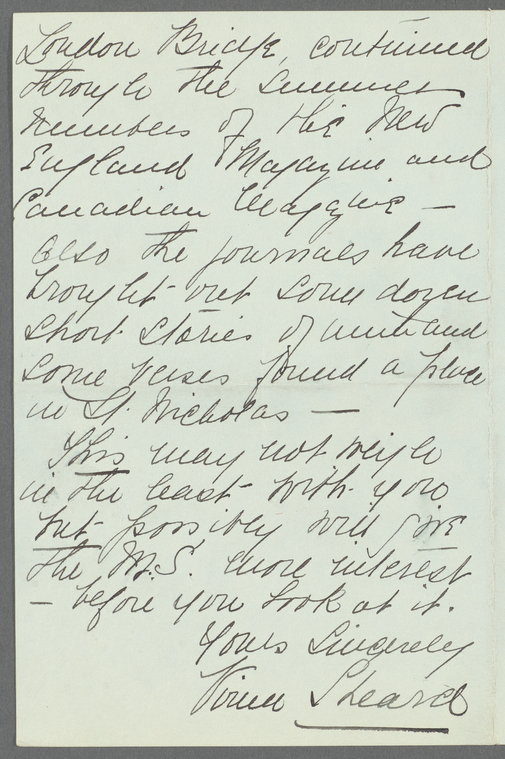 London Bridge, continued
through the summer
numbers of the New
England Magazine and
Canadian Magazine —
Also the journals have
brought out some dozen
short stories of mine and
some verses found a place
in St. Nicholas —
This may not weigh
in the least with you
but possibly will give
the M.S. more interest
— before you look at it.
Yours Sincerely
Virna Sheard